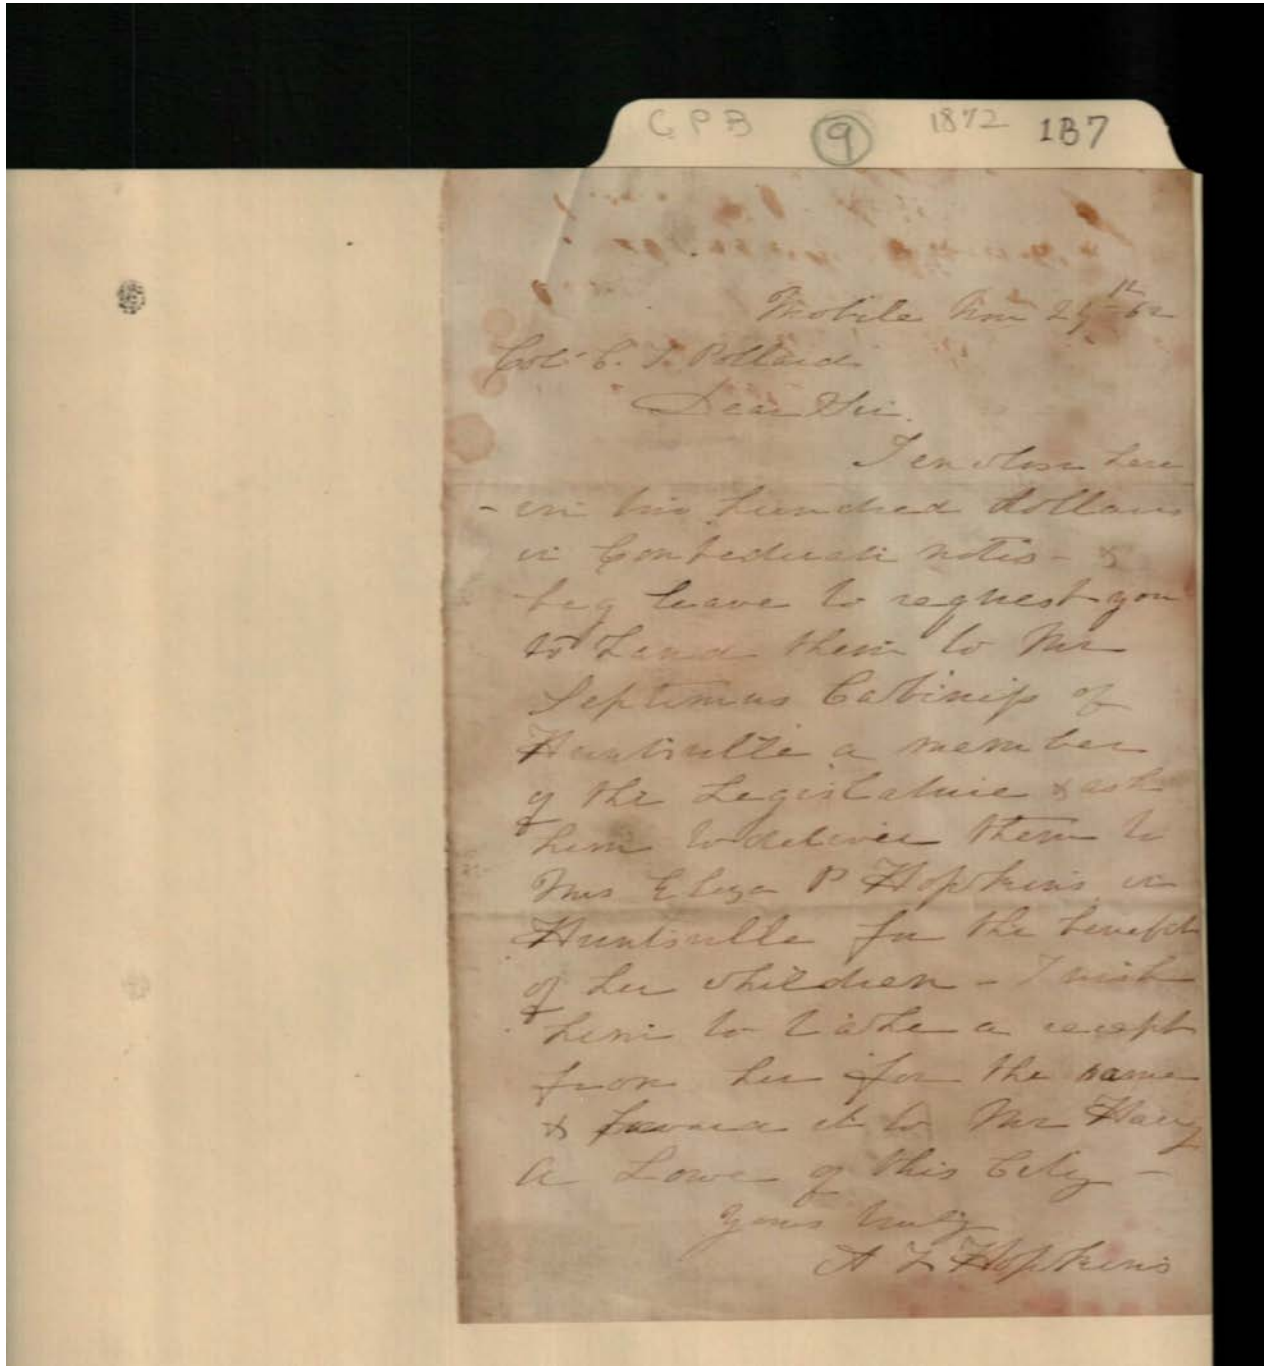 CPB 9 1872 1B7
Mobile Nov 29th 62
Col C. T. Pollard
Dear Sir.
I enclose here
- in two hundred dollars
in Confederate notes - &
beg leave to request you
to hand them to Mr
Septimus Cabiniss of
Huntsville a member
of the Legislature & ask
him to deliver them to
Mrs Eliza P Hopkins in
Huntsville for the benefit
of her children - I wish
him to take a receipt
from her for the same
& forward it to Mr Harry
A Lowe of this City -
Yours truly
A F Hopkins